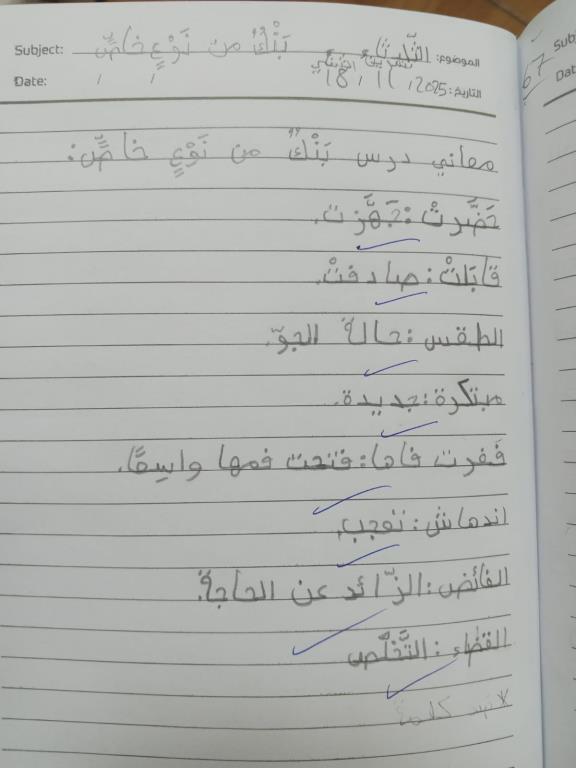 Subject: بَنْكٌ من نَوْعٍ خاصٍّ الموضوع: الثّلاثاء
تشرين الثاني
Date: , , التاريخ: 18 , 11 , 2025
معاني درس بَنْكٌ من نَوْعٍ خاصٍّ:
حَضَّرتْ: جَهَّزت.
قابَلتْ: صادفتْ.
الطقس: حالة الجوّ.
مبتكرة: جديدة.
فَغرت فاها: فتحت فمها واسِعًا.
اندهاش: تعجب.
الفائض: الزّائد عن الحاجة.
القضاء: التَّخلّص
كلمة
67
Sub
Dat